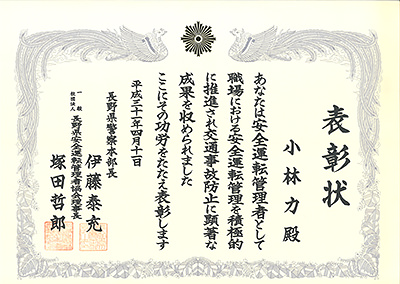 表彰状
小林力殿
あなたは安全運転管理者として
職場における安全運転管理を積極的
に推進され交通事故防止に顕著な
成果を収められました
ここにその功労をたたえ表彰します
平成三十一年四月十一日
長野県警察本部長
伊藤泰充
一般社団法人 長野県安全運転管理者協会理事長
塚田哲郎